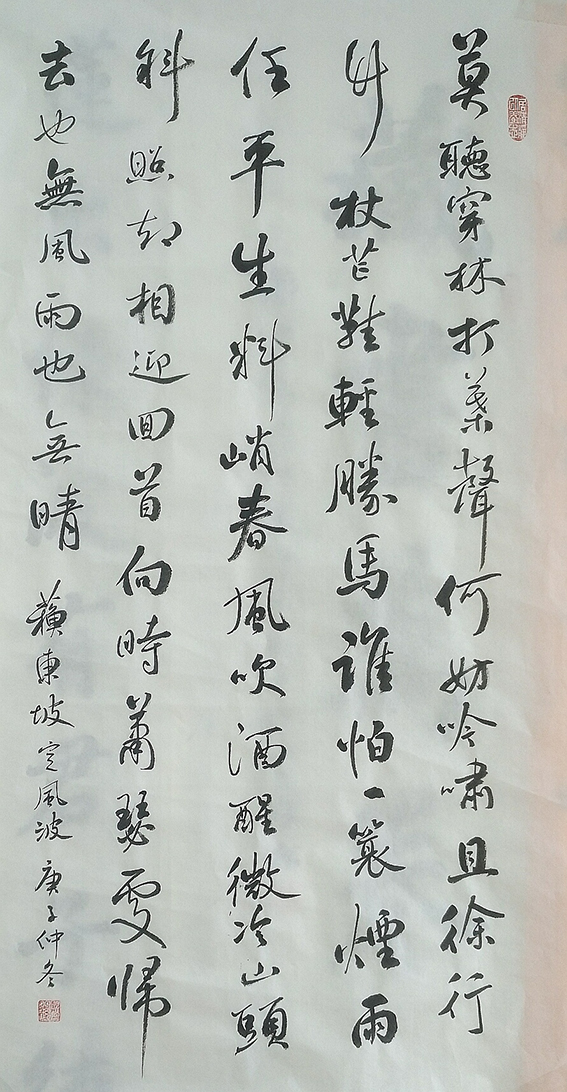 莫聽穿林打葉聲何妨吟嘯且徐行
竹杖芒鞋輕勝馬誰怕一蓑煙雨
任平生料峭春風吹酒醒微冷山頭
斜照却相迎回首向時蕭瑟處歸
去也無風雨也無晴 蘇東坡定風波 庚子仲冬